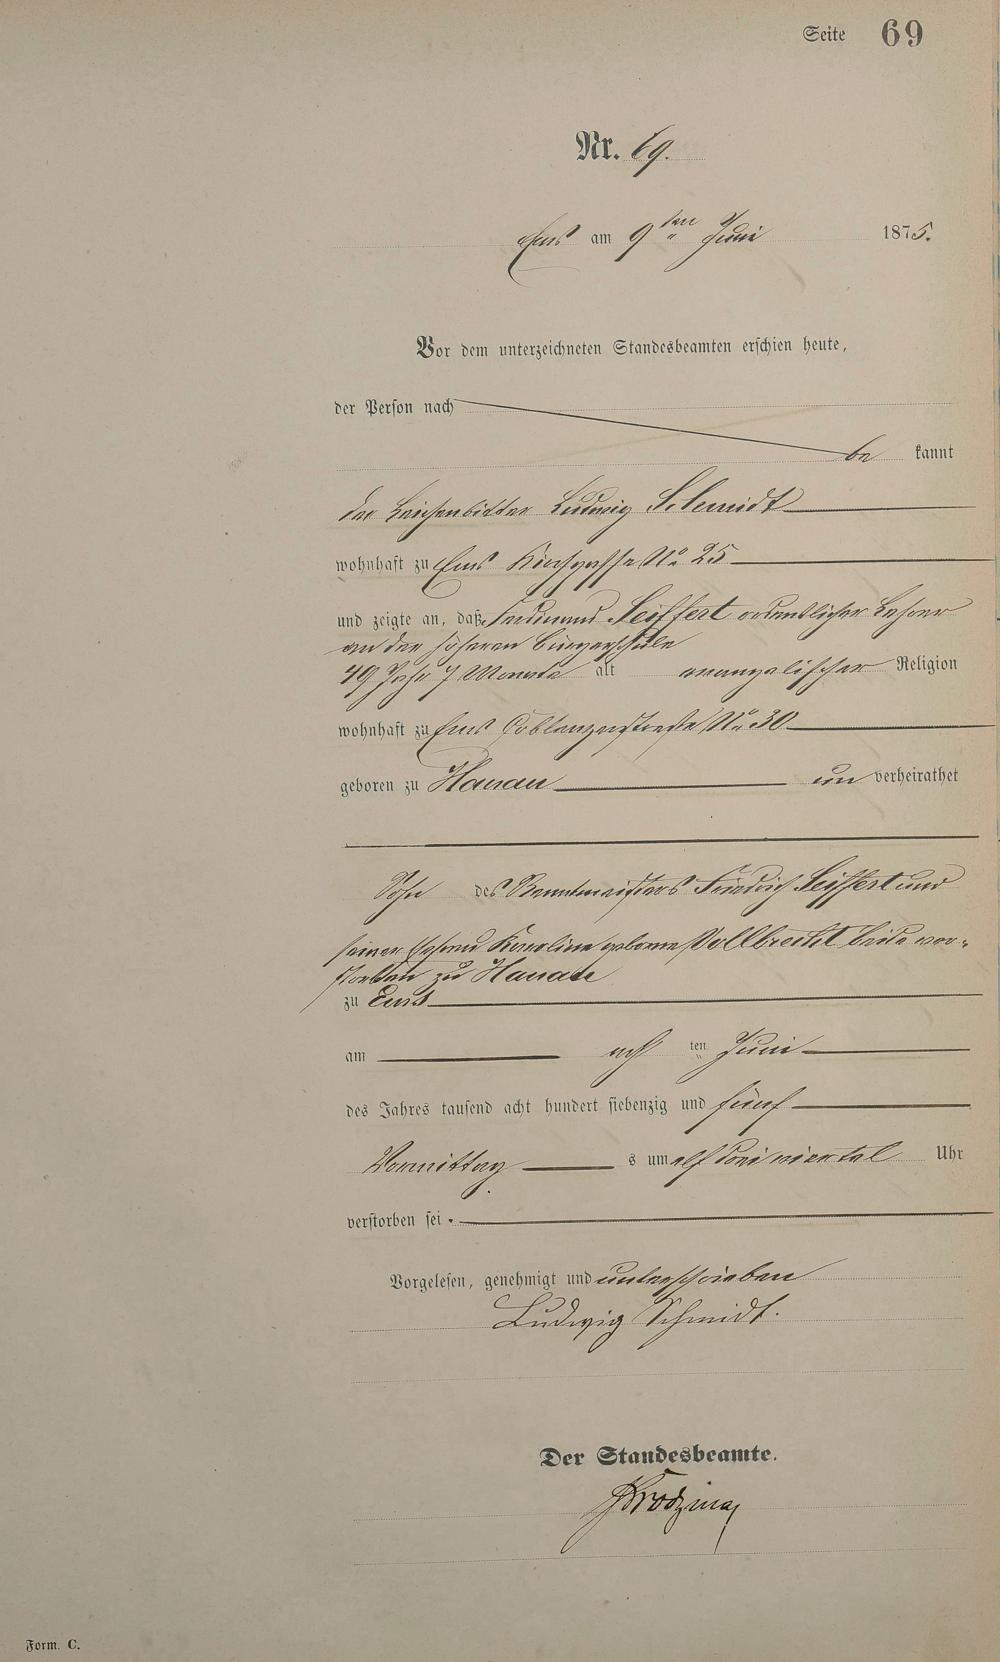 Seite 69
Nr. 69.
Ems am 9ten Juni 1875.
Vor dem unterzeichneten Standesbeamten erschien heute,
der Person nach
be kannt
der Leichenbitter Ludwig Schmidt
wohnhaft zu Ems Kirchgasse No 25
und zeigte an, daß Ferdinand Seiffert ordentlicher Lehrer
an der höheren Bürgerschule
49 Jahr 7 Monate alt evangelischer Religion
wohnhaft zu Ems Coblenzerstraße No 30
geboren zu Hanau un verheirathet
Sohn des Rentmeisters Friedrich Seiffert und
seiner Ehefrau Karoline geborne Vollbrecht beide ver-
storben zu Hanau
zu Ems
am acht ten Juni
des Jahres tausend acht hundert siebenzig und fünf
Vormittag s um elf drei viertel Uhr
verstorben sei.
Vorgelesen, genehmigt und unterschrieben
Ludwig Schmidt.
Der Standesbeamte.
Form. C.